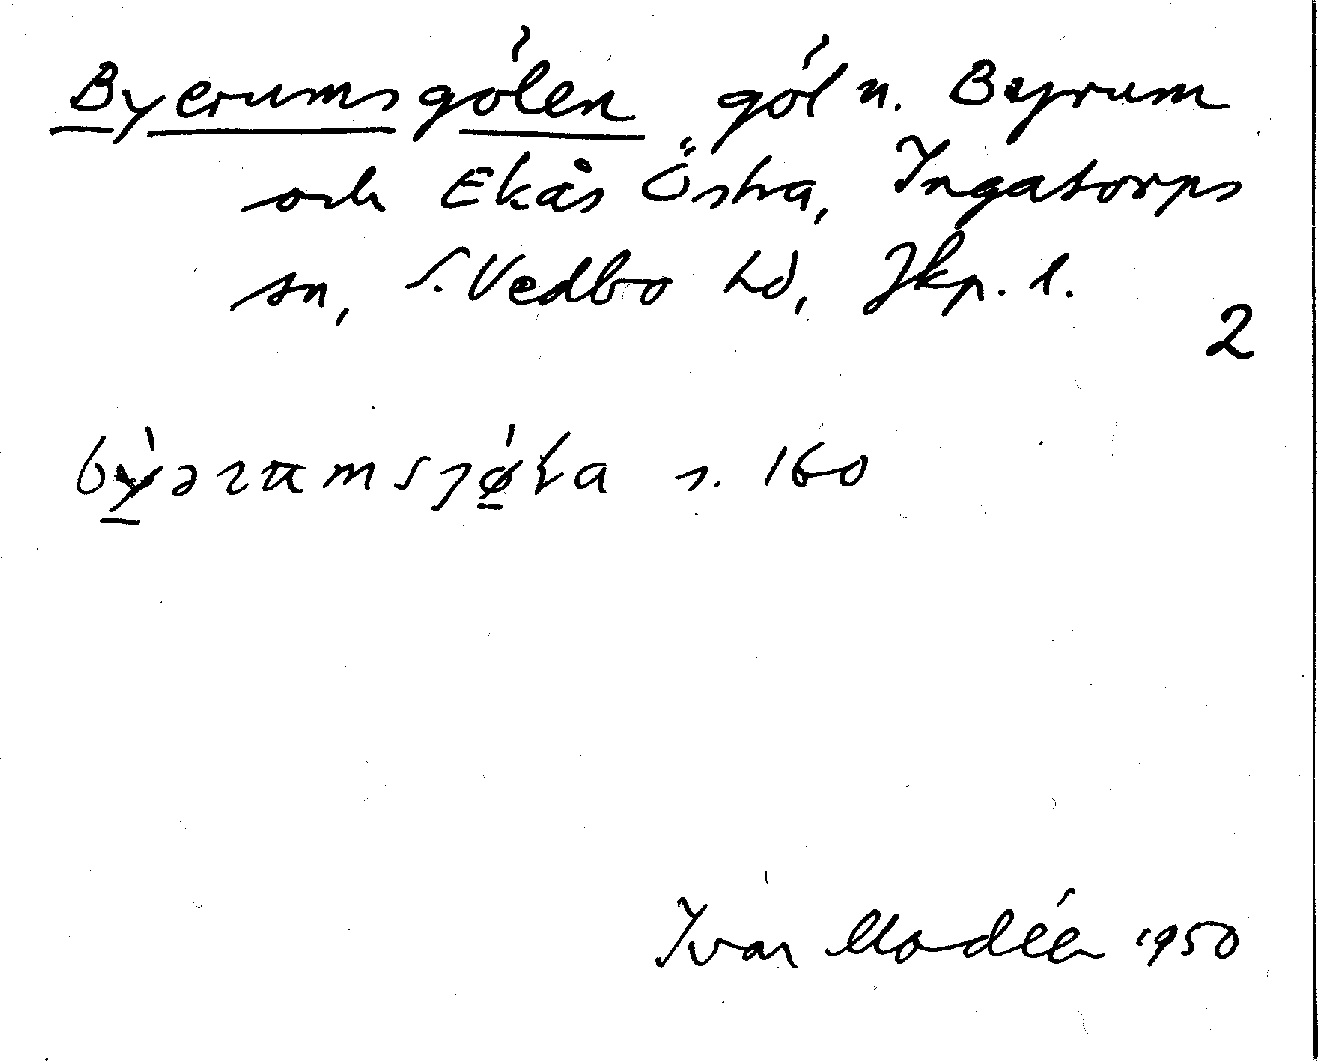 Byerumsgölen göl n. Beyrum
och Ekås Östra, Ingatorps
sn, S. Vedbo hd, Jkp. l.
2
s. 160
Ivar Modéer 1950